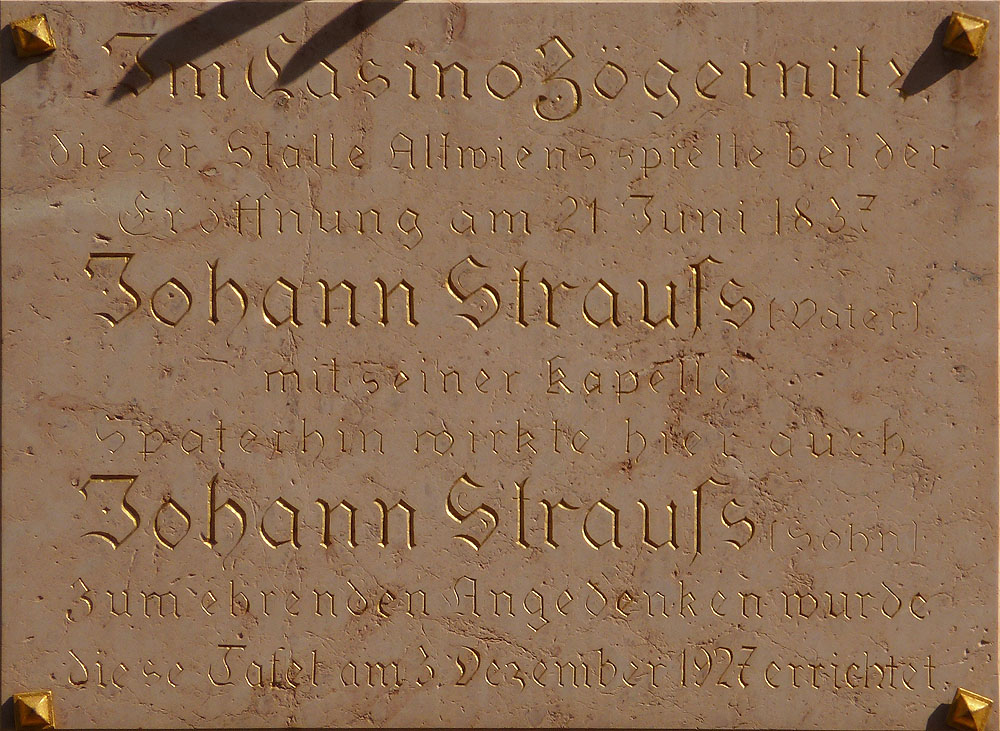 Im Casino Zögernitz
dieser Ställe Altwiens spielte bei der
Eröffnung am 21. Juni 1837
Johann Strauſs (Vater)
mit seiner Kapelle
Späterhin wirkte hier auch
Johann Strauſs (Sohn).
Zum ehrenden Angedenken wurde
diese Tafel am 3. Dezember 1927 errichtet.